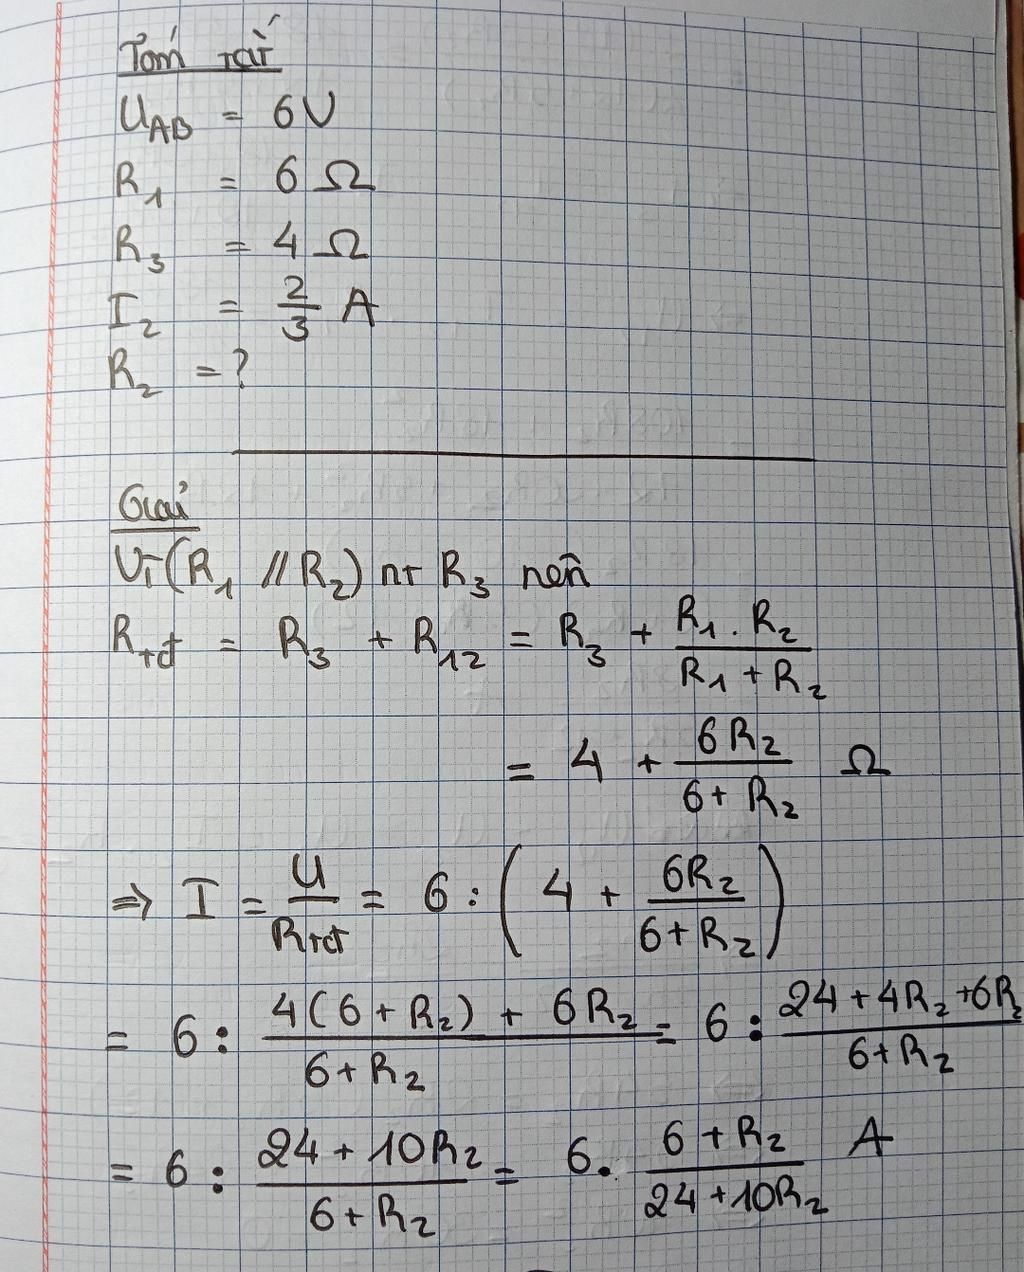 Tóm tắt
U_AB = 6V
R_1 = 6 Ω
R_3 = 4 Ω
I_2 = 2/3 A
R_2 = ?
Giải
Vì (R_1 // R_2) nt R_3 nên
R_tđ = R_3 + R_12 = R_3 + (R_1 . R_2)/(R_1 + R_2)
= 4 + 6R_2/(6 + R_2) Ω
⇒ I = U/R_tđ = 6 : (4 + 6R_2/(6 + R_2))
= 6 : (4(6 + R_2) + 6R_2)/(6 + R_2) = 6 : (24 + 4R_2 + 6R_2)/(6 + R_2)
= 6 : (24 + 10R_2)/(6 + R_2) = 6 . (6 + R_2)/(24 + 10R_2) A